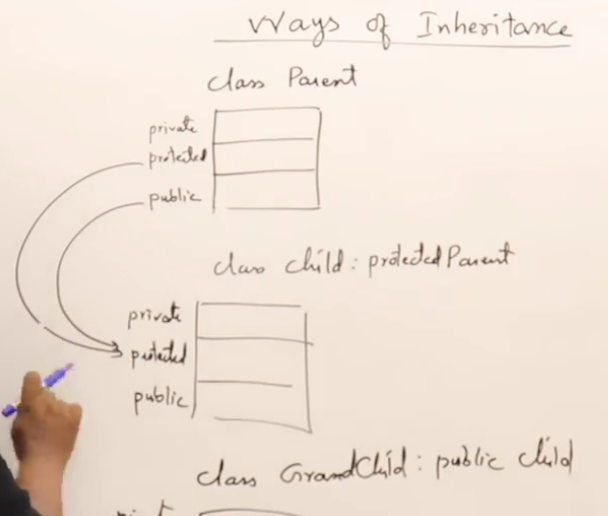 Ways of Inheritance
class Parent
private
protected
public
class Child : protected Parent
private
protected
public
class GrandChild : public Child